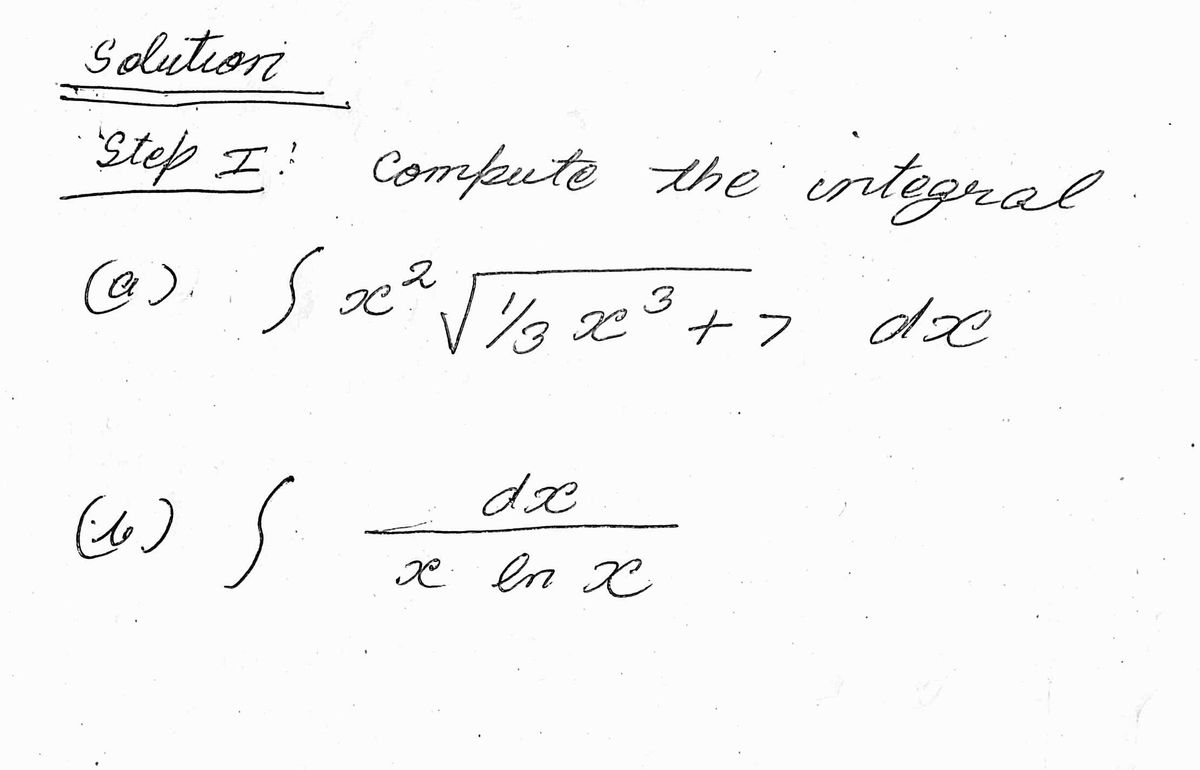 Solution
Step I: Compute the integral
(a). ∫ x² √(1/3 x³ + 7) dx
(b) ∫ dx / (x ln x)